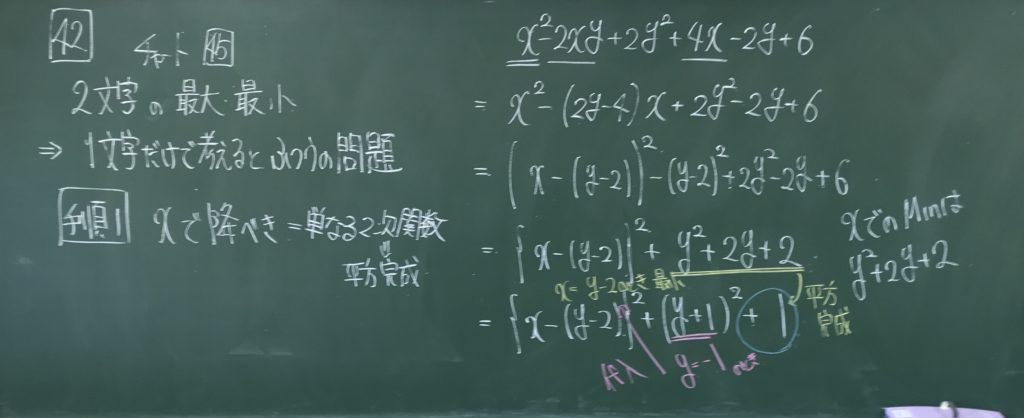 42 チャート 45
2文字の最大・最小
⇒ 1文字だけで考えるとふつうの問題
手順1 xで降べき=単なる2次関数
平方完成
x²-2xy+2y²+4x-2y+6
= x²-(2y-4)x+2y²-2y+6
= {x-(y-2)}²-(y-2)²+2y²-2y+6
= {x-(y-2)}²+y²+2y+2
x=y-2のとき最小
= {x-(y-2)}²+(y+1)²+1
平方完成
代入 y=-1のとき
xでのMinは
y²+2y+2